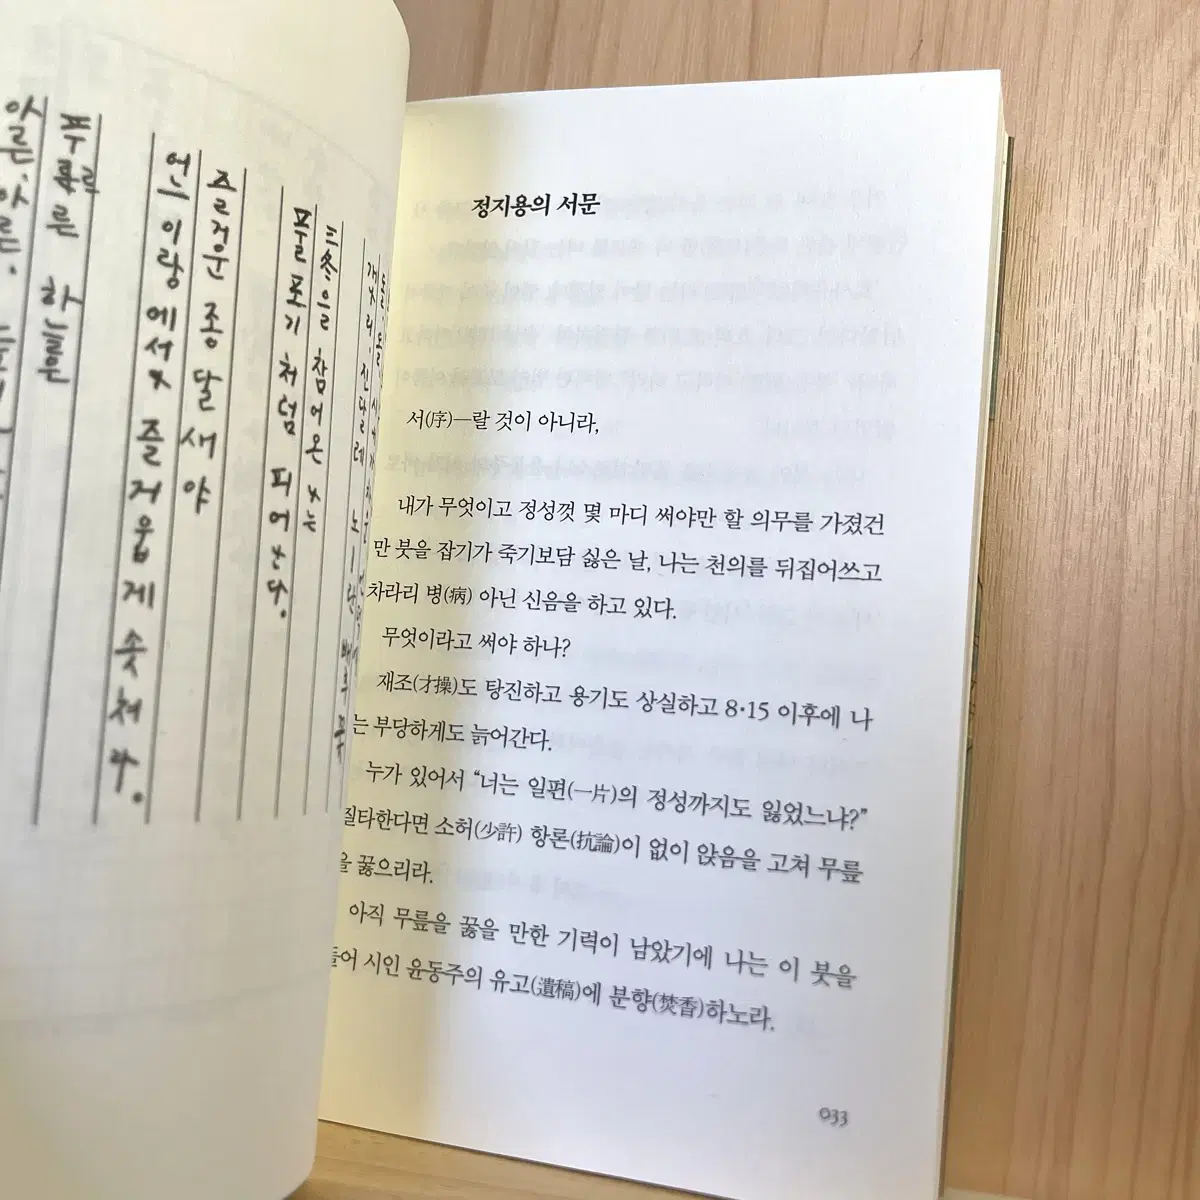 三冬을 참어온 나는
풀포기 처럼 피어난다.
즐거운 종달새야
어느 이랑에서나 즐거웁게 솟쳐라.
푸르른 하늘은
아른, 아른,
정지용의 서문
서(序)—랄 것이 아니라,
내가 무엇이고 정성껏 몇 마디 써야만 할 의무를 가졌건
만 붓을 잡기가 죽기보담 싫은 날, 나는 천의를 뒤집어쓰고
차라리 병(病) 아닌 신음을 하고 있다.
무엇이라고 써야 하나?
재조(才操)도 탕진하고 용기도 상실하고 8·15 이후에 나
는 부당하게도 늙어간다.
누가 있어서 “너는 일편(一片)의 정성까지도 잃었느냐?”
질타한다면 소허(少許) 항론(抗論)이 없이 앉음을 고쳐 무릎
을 꿇으리라.
아직 무릎을 꿇을 만한 기력이 남았기에 나는 이 붓을
들어 시인 윤동주의 유고(遺稿)에 분향(焚香)하노라.
033